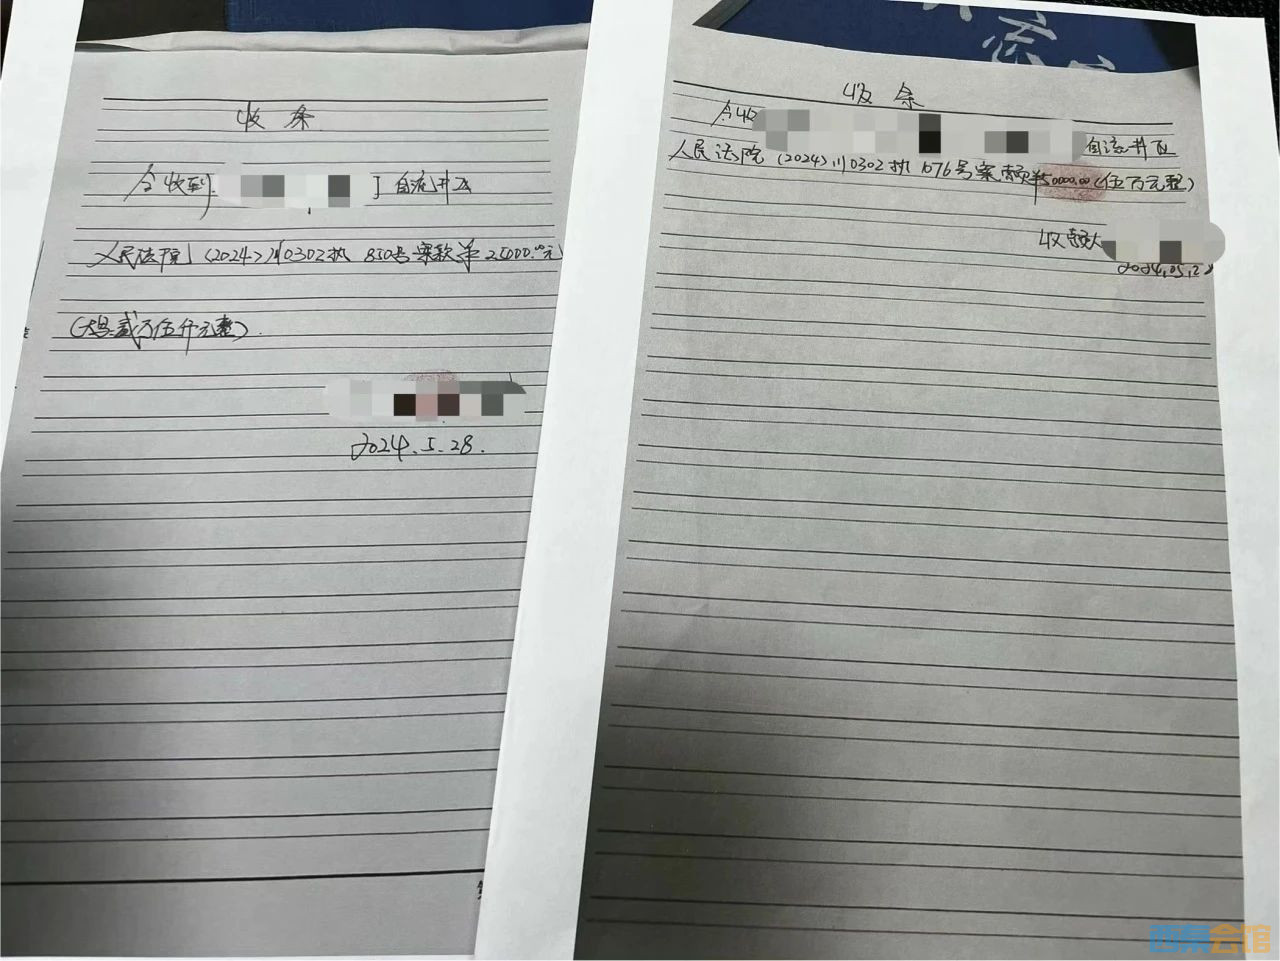 收条
今收到 自流井区
人民法院(2024)川0302执 850号案款￥25000.00元
(大写:贰万伍仟元整).
2024.5.28.
收条
今收 自流井区
人民法院(2024)川0302执1076号案款￥50000.00(伍万元整)
收款人
2024.05.2
西秦会馆